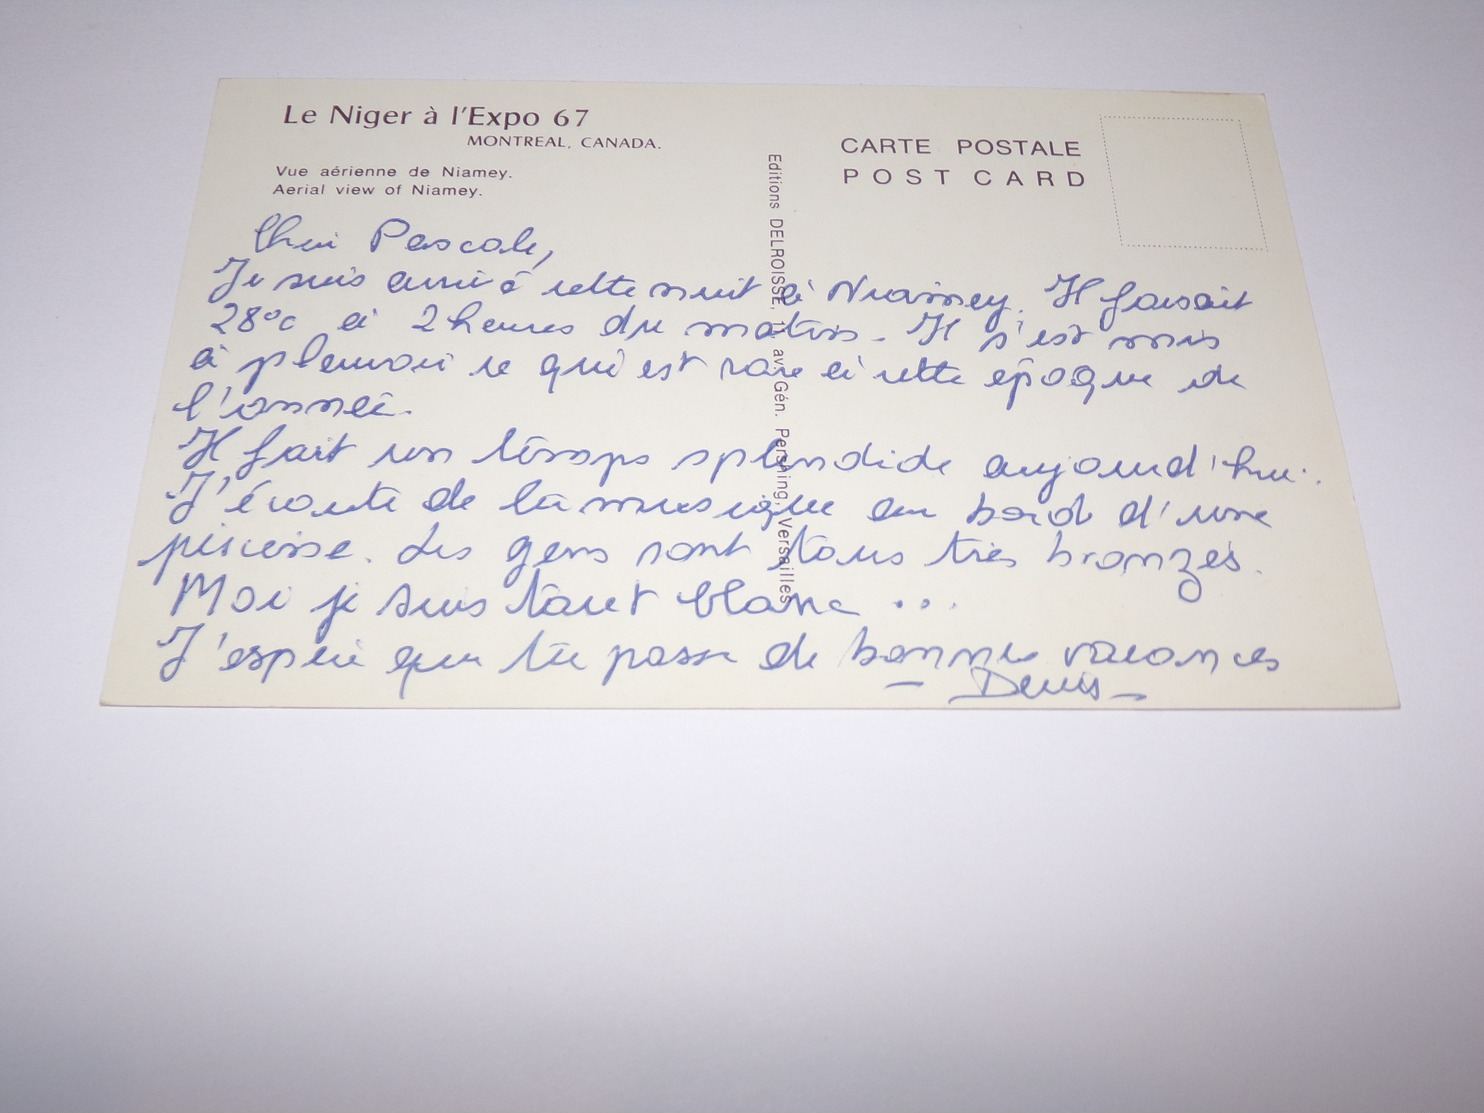 Le Niger à l'Expo 67
MONTREAL, CANADA.
Vue aérienne de Niamey.
Aerial view of Niamey.
CARTE POSTALE
POST CARD
Editions DELROISSE, 11, av. Gén. Pershing, Versailles
Cher Pascale,
Je suis arrivé cette nuit à Niamey. Il faisait
28°c à 2 heures du matin. Il s'est mis
à pleuvoir ce qui est rare à cette époque de
l'année.
Il fait un temps splendide aujourd'hui.
J'écoute de la musique au bord d'une
piscine. Les gens sont tous très bronzés.
Moi je suis tout blanc ...
J'espère que tu passe de bonnes vacances
- Denis -